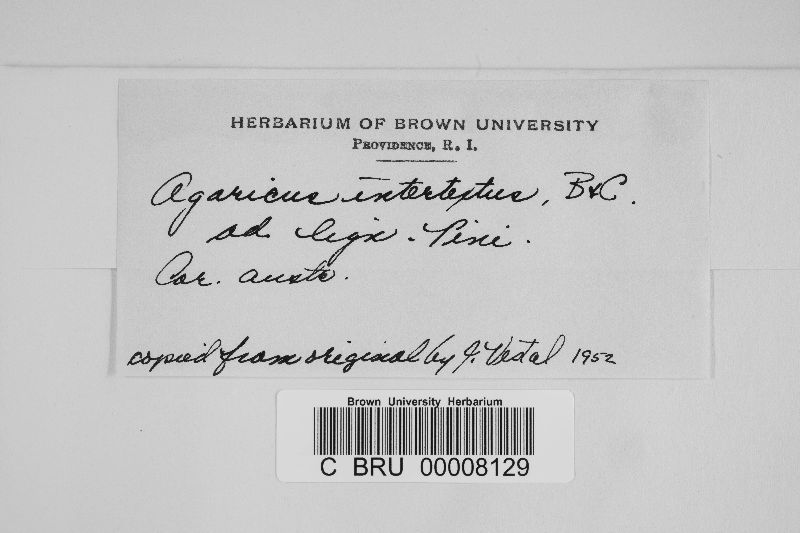 HERBARIUM OF BROWN UNIVERSITY
PROVIDENCE, R. I.
Agaricus intertextus, B&C.
ad lign. Pini.
Car. austr.
copied from original by J. Vestal 1952
Brown University Herbarium
C BRU 00008129